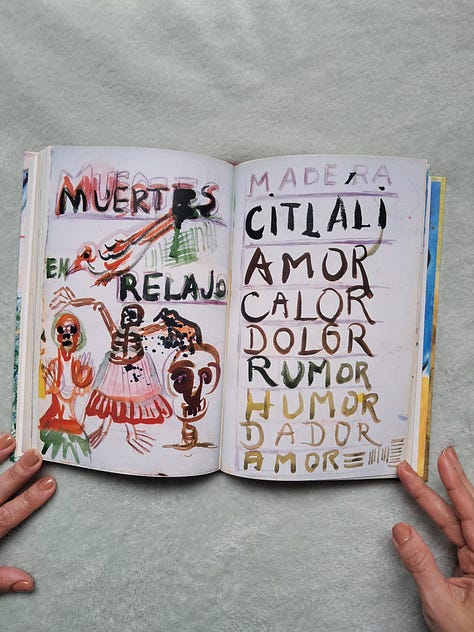 MUERTES
EN
RELAJO
MADERA
CITLALI
AMOR
CALOR
DOLOR
RUMOR
HUMOR
DADOR
AMOR